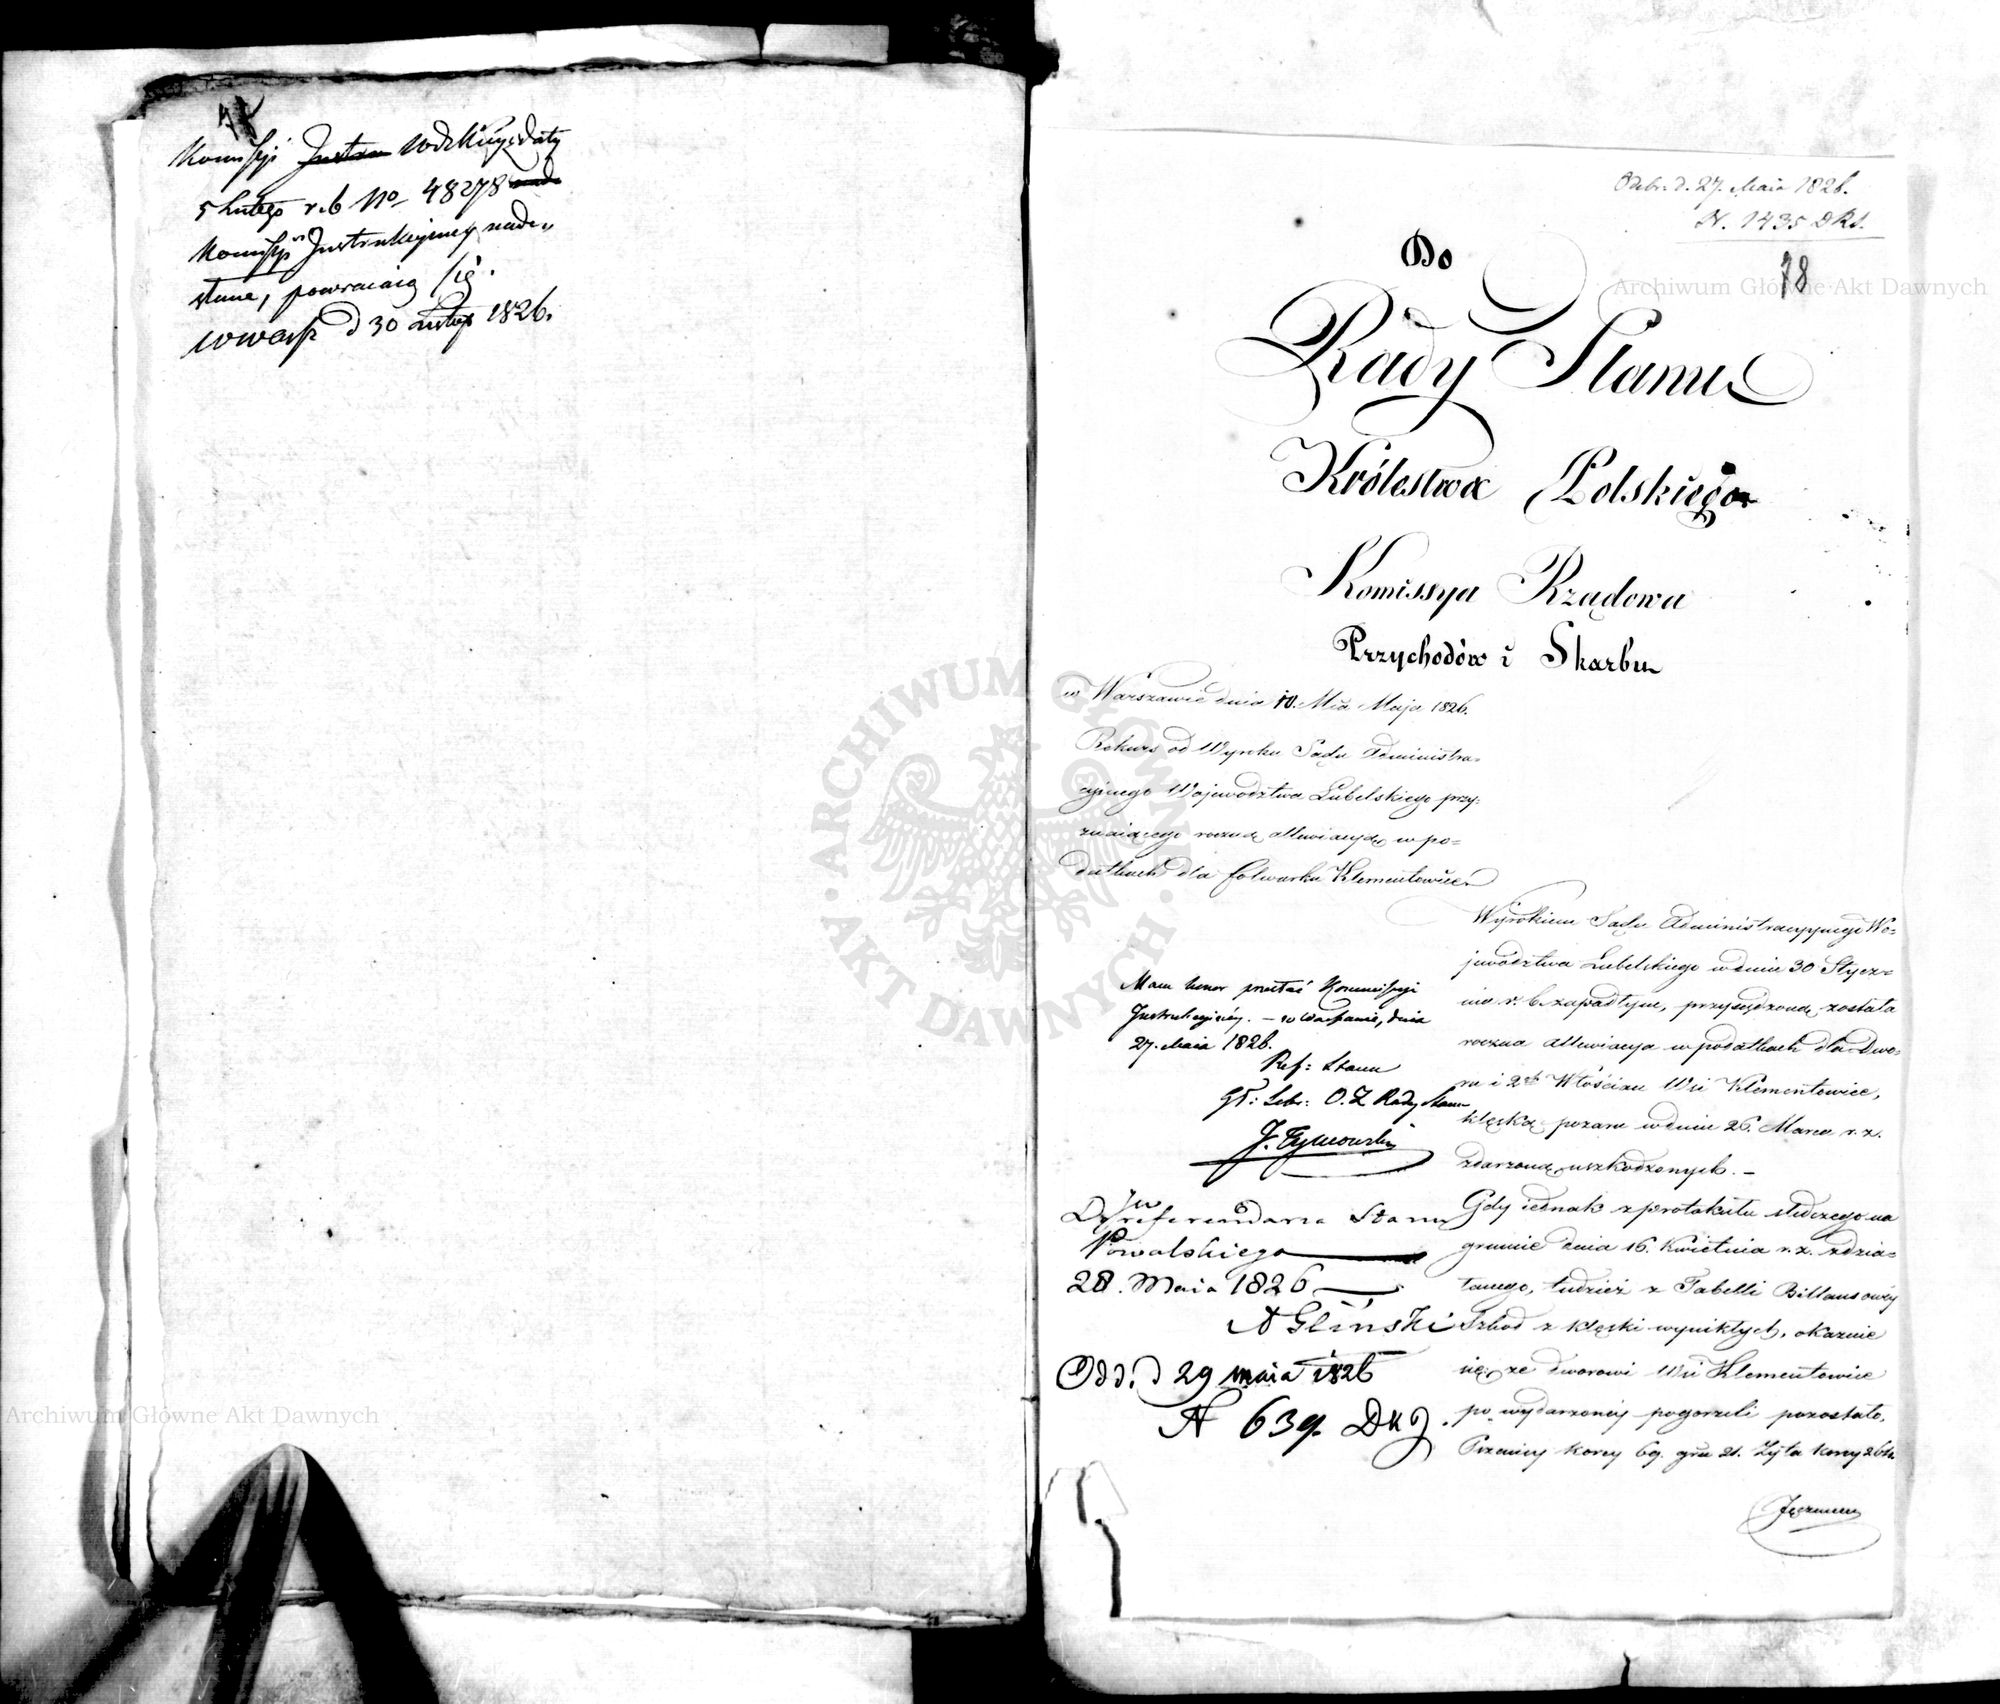 Komissyi Instru Woiew. Kuyeda ty
5 Lutego r. b No 48278
Komissyi Instrukcyiney nade„
słane, powracaią się.
w Warsz d 30 Lutego 1826.
Odebr. d. 27. Maia 1826.
N. 1435 DRS.
78
Do
Rady Stanu
Królestwa Polskiego
Komissya Rządowa
Przychodów i Skarbu
w Warszawie dnia 10. Mca Maja 1826.
Rekurs od Wyroku Sądu Administra=
cyinego Województwa Lubelskiego przy=
znaiącego roczną allewiacyą w po=
datkach dla folwarku Klementowice
Wyrokiem Sądu Administracyjnego Wo=
jewództwa Lubelskiego w dniu 30 Stycz=
nia r. b. zapadłym, przysądzoną została
roczna allewiacya w podatkach dla Dwo=
ru i 2ch Włościan Wsi Klementowice,
klęską pożaru w dniu 26. Marca r. z.
zdarzoną uszkodzonych. –
Gdy iednak z protokułu śledczego na
gruncie dnia 16. Kwietnia r. z. zdzia=
łanego, tudzież z Tabelli Billansowéy
Szkod z klęski wynikłych, okazuie
się, że dworowi Wsi Klementowice
po wydarzonéy pogorzeli pozostało,
Pszenicy korcy 69. gru 21. Żyta korcy 264.
Jęczmienia
Mam honor przesłać Kommissyi
Instrukcyinéy. – w Warszawie, dnia
27. Maia 1826.
Ref: Stanu
Gł: Sekr: O. Z Rady Stanu
J. Tymowski
JW
Do referendarza Stanu
Kowalskiego
28. Maia 1826
A Gliński
Odd. d 29 maia 1826
N 639. DKJ.
Archiwum Główne Akt Dawnych
Archiwum Główne Akt Dawnych
ARCHIWUM GŁÓWNE · AKT DAWNYCH ·